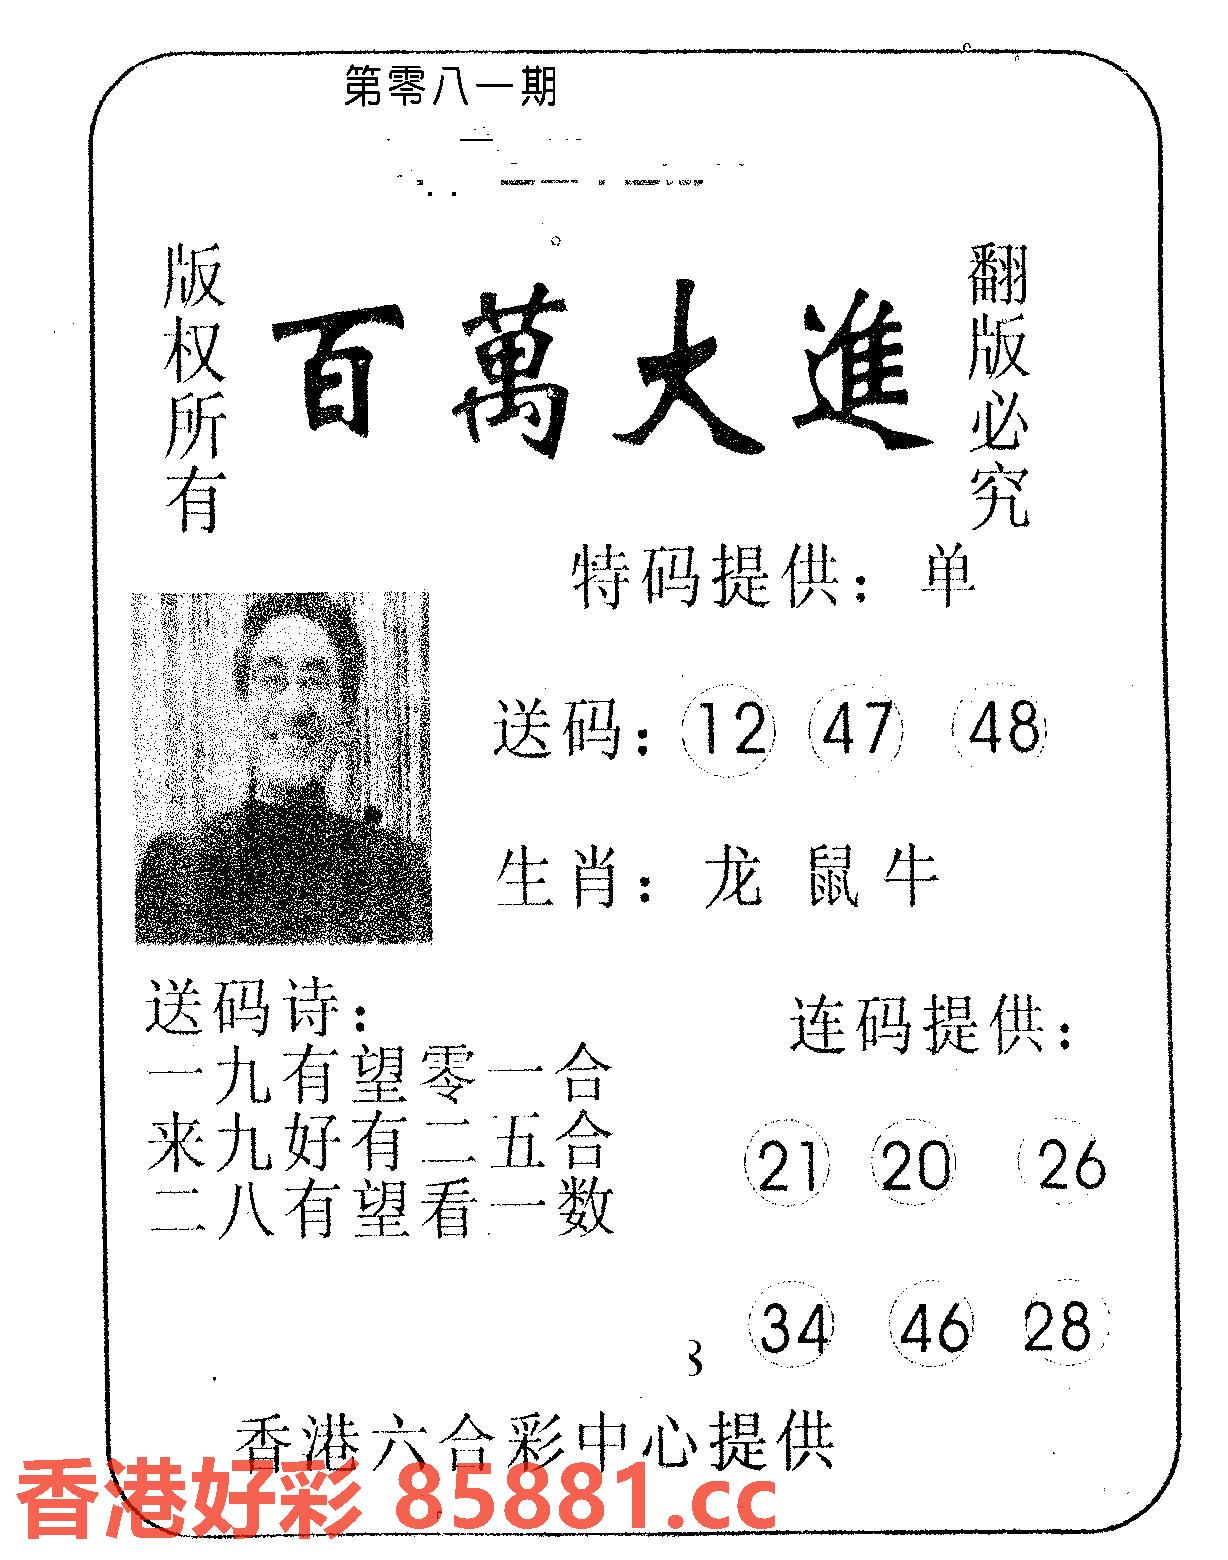 第零八一期
版权所有
百萬大進
翻版必究
特码提供：单
送码：12 47 48
生肖：龙 鼠 牛
送码诗：
一九有望零一合
来九好有二五合
二八有望看一数
连码提供：
21 20 26
34 46 28
香港六合彩中心提供
香港好彩 85881.cc